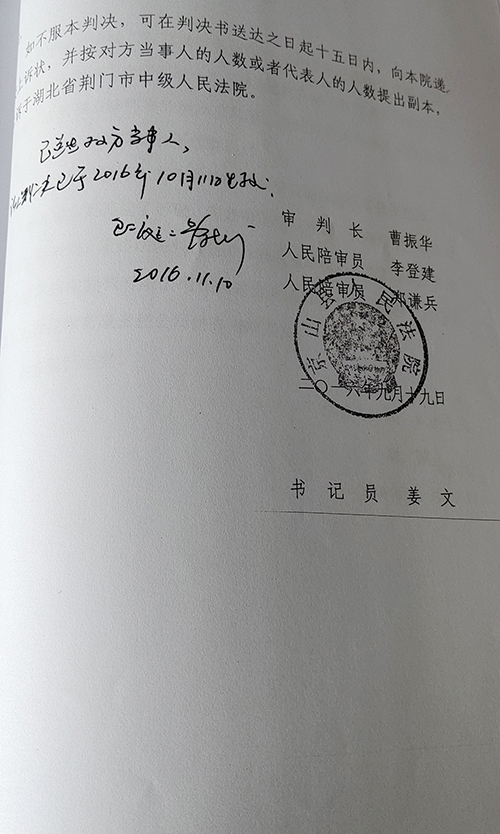 如不服本判决，可在判决书送达之日起十五日内，向本院递
上诉状，并按对方当事人的人数或者代表人的人数提出副本，
诉于湖北省荆门市中级人民法院。
已送达双方当事人，
已于2016年10月11日生效.
2016.11.10
审判长 曹振华
人民陪审员 李登建
人民陪审员 郑谦兵
京山县人民法院
二〇一六年九月十九日
书记员 姜文